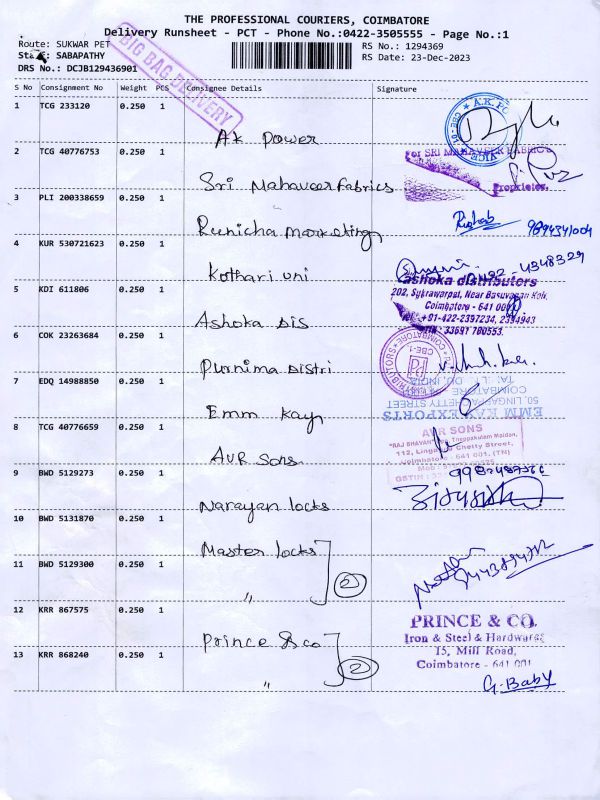 THE PROFESSIONAL COURIERS, COIMBATORE
Delivery Runsheet - PCT - Phone No.:0422-3505555 - Page No.:1
Route: SUKWAR PET
RS No.: 1294369
SABAPATHY
RS Date: 23-Dec-2023
DRS No.: DCJB129436901
BIG BAG DELIVERY
S No Consignment No Weight PCS Consignee Details Signature
1 TCG 233120 0.250 1 AK Power
A.K. CBE-01
2 TCG 40776753 0.250 1 Sri Mahaveer Fabrics
For SRI MAHAVEER FABRICS
Proprietor.
3 PLI 200338659 0.250 1 Runicha marketing
4 KUR 530721623 0.250 1 Kothari uni
5 KDI 611806 0.250 1 Ashoka Dis
ashoka distributors
Coimbatore - 641 001
6 COK 23263684 0.250 1 Purnima Distri
COIMBATORE CBE-1
7 EDQ 14988850 0.250 1 Emm Kay
EMM KAY EXPORTS
8 TCG 40776659 0.250 1 AVR Sons
AVR SONS
"RAJ BHAVAN" Thoppakulam Maidan,
112, Lingappa Chetty Street,
Coimbatore - 641 001, (TN)
9 BWD 5129273 0.250 1 Narayan locks
10 BWD 5131870 0.250 1 Master locks
11 BWD 5129300 0.250 1 〃 2
12 KRR 867575 0.250 1 Prince & co
PRINCE & CO.
Iron & Steel & Hardwares
15, Mill Road,
Coimbatore - 641 001
13 KRR 868240 0.250 1 〃 2
G. Baby